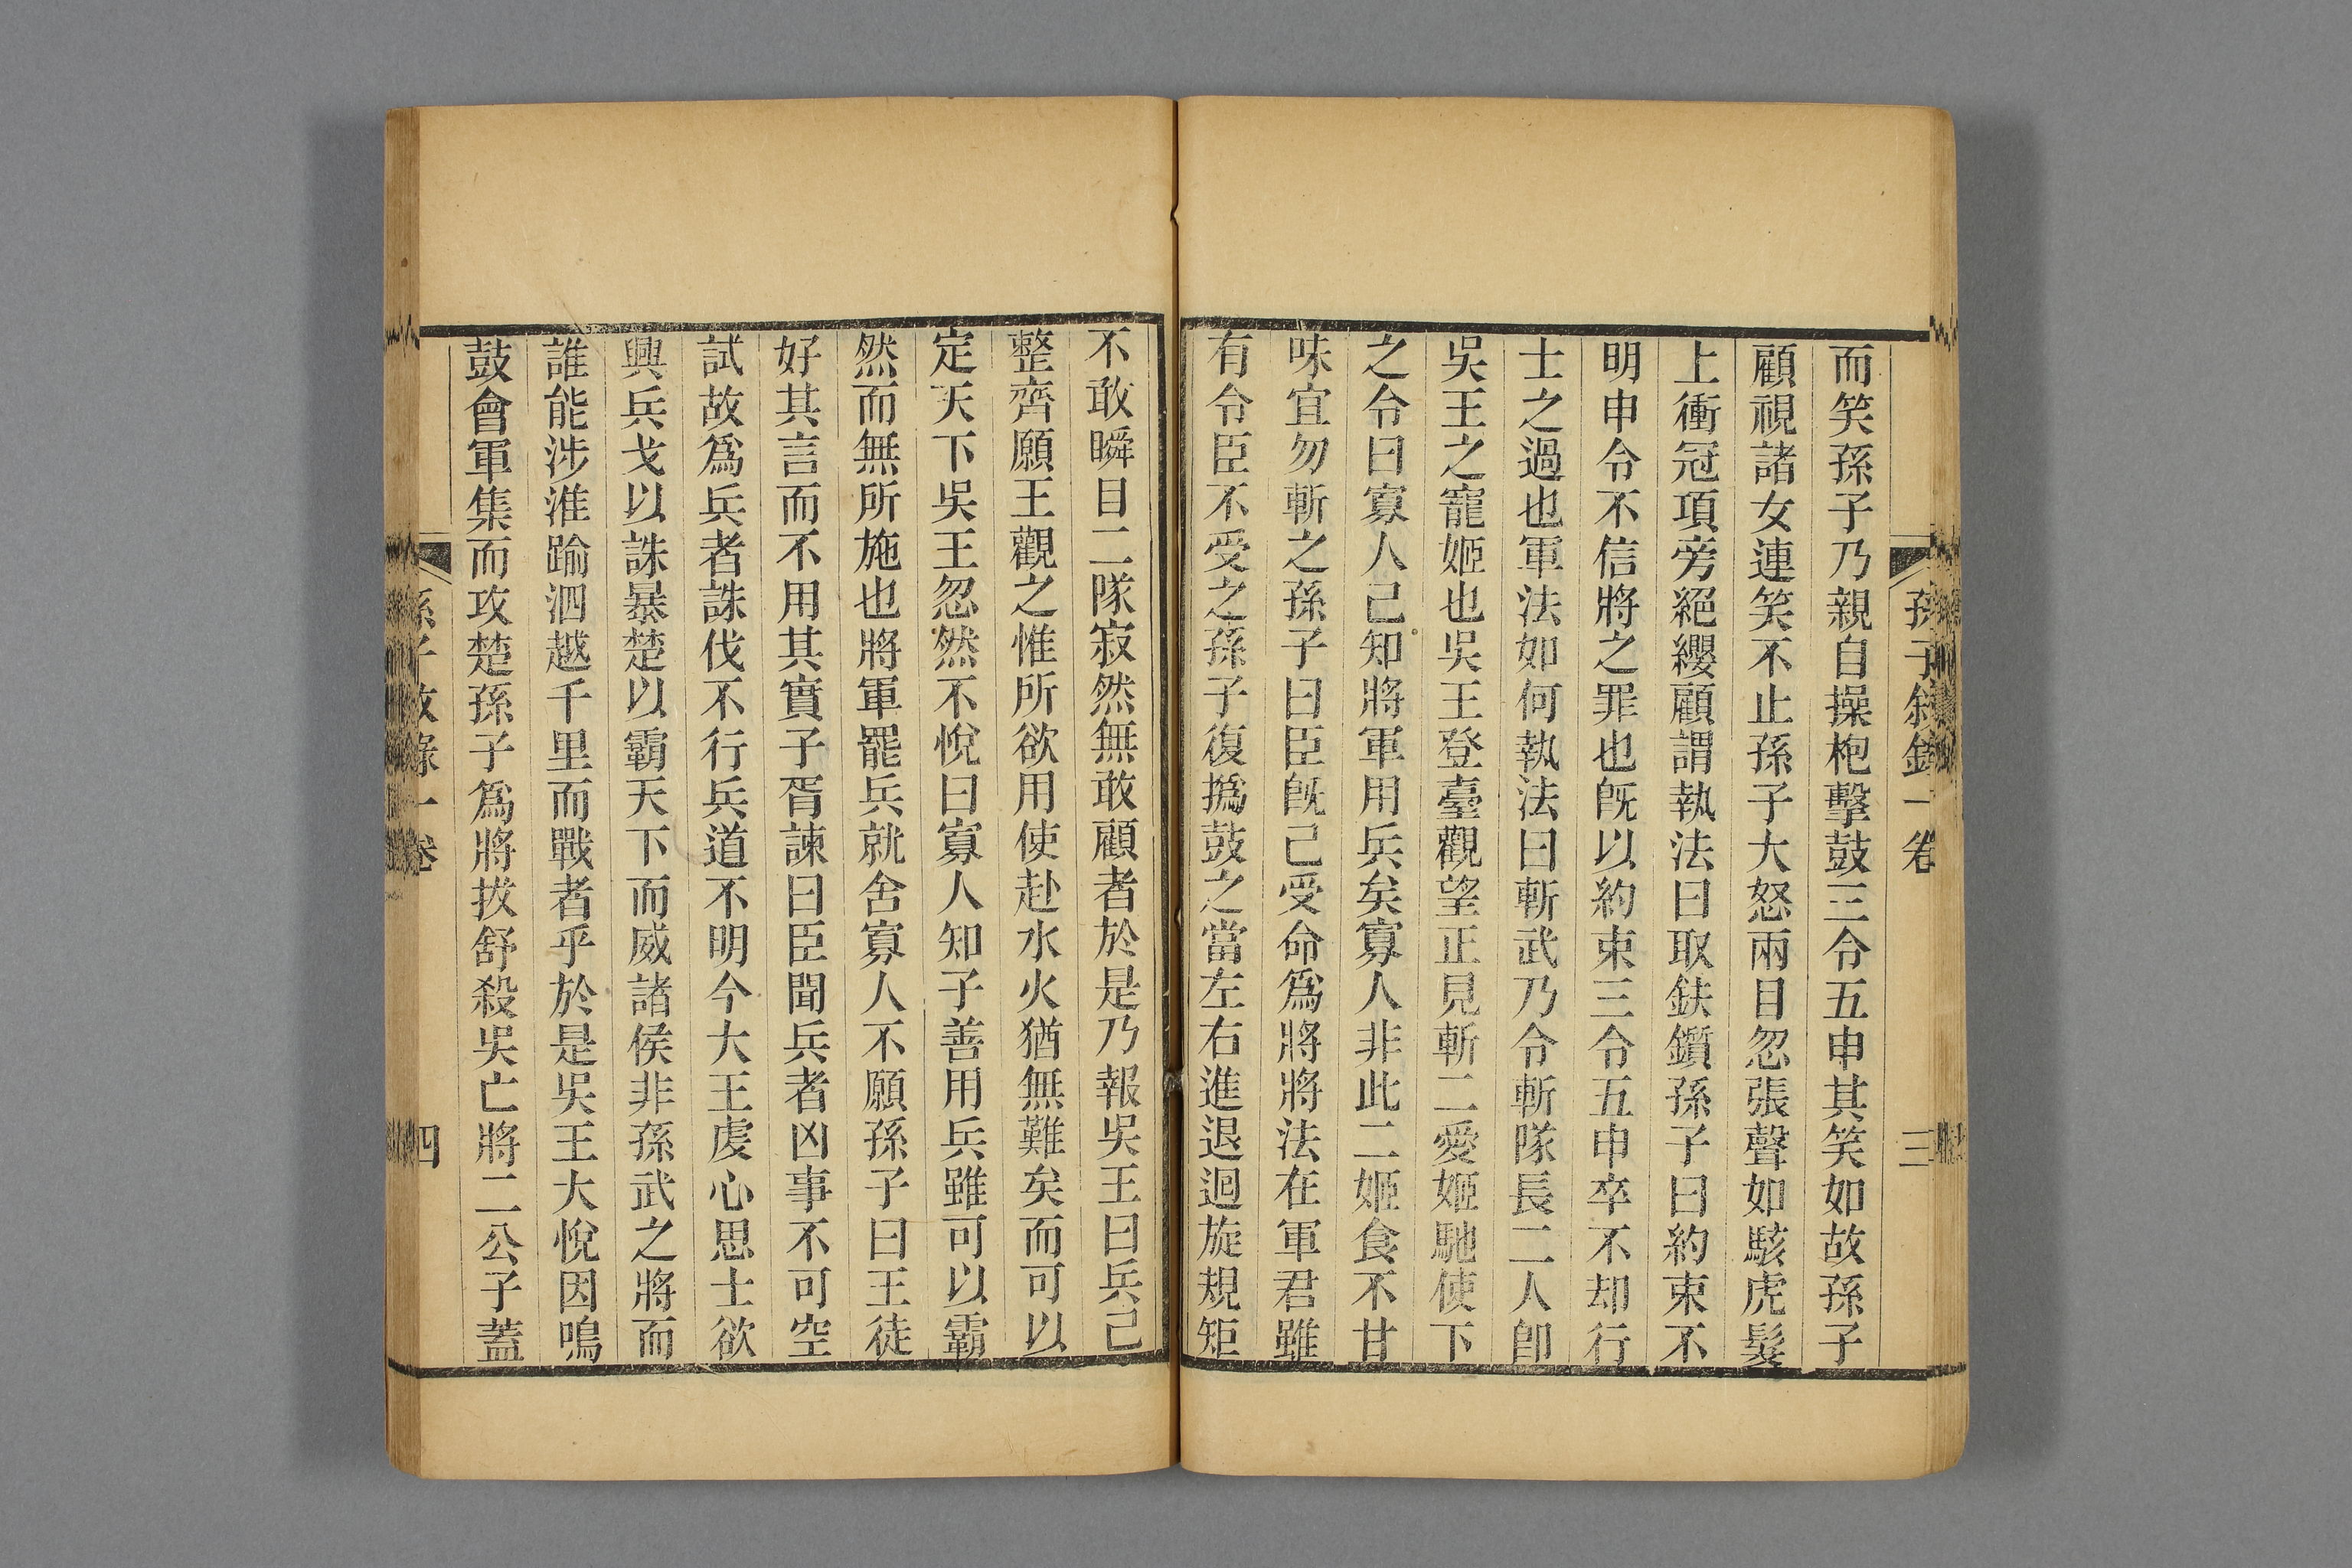 孫子敘錄一卷
三
而笑孫子乃親自操枹擊鼓三令五申其笑如故孫子
顧視諸女連笑不止孫子大怒兩目忽張聲如駭虎髮
上衝冠項旁絕纓顧謂執法曰取鈇鑕孫子曰約束不
明申令不信將之罪也旣以約束三令五申卒不却行
士之過也軍法如何執法曰斬武乃令斬隊長二人卽
吳王之寵姬也吳王登臺觀望正見斬二愛姬馳使下
之令曰寡人己知將軍用兵矣寡人非此二姬食不甘
味宜勿斬之孫子曰臣旣己受命爲將將法在軍君雖
有令臣不受之孫子復撝鼓之當左右進退迴旋規矩
不敢瞬目二隊寂然無敢顧者於是乃報吳王曰兵己
整齊願王觀之惟所欲用使赴水火猶無難矣而可以
定天下吳王忽然不悅曰寡人知子善用兵雖可以霸
然而無所施也將軍罷兵就舍寡人不願孫子曰王徒
好其言而不用其實子胥諫曰臣聞兵者凶事不可空
試故爲兵者誅伐不行兵道不明今大王虔心思士欲
興兵戈以誅暴楚以霸天下而威諸侯非孫武之將而
誰能涉淮踰泗越千里而戰者乎於是吳王大悅因鳴
鼓會軍集而攻楚孫子爲將拔舒殺吳亡將二公子蓋
孫子敘錄一卷
四